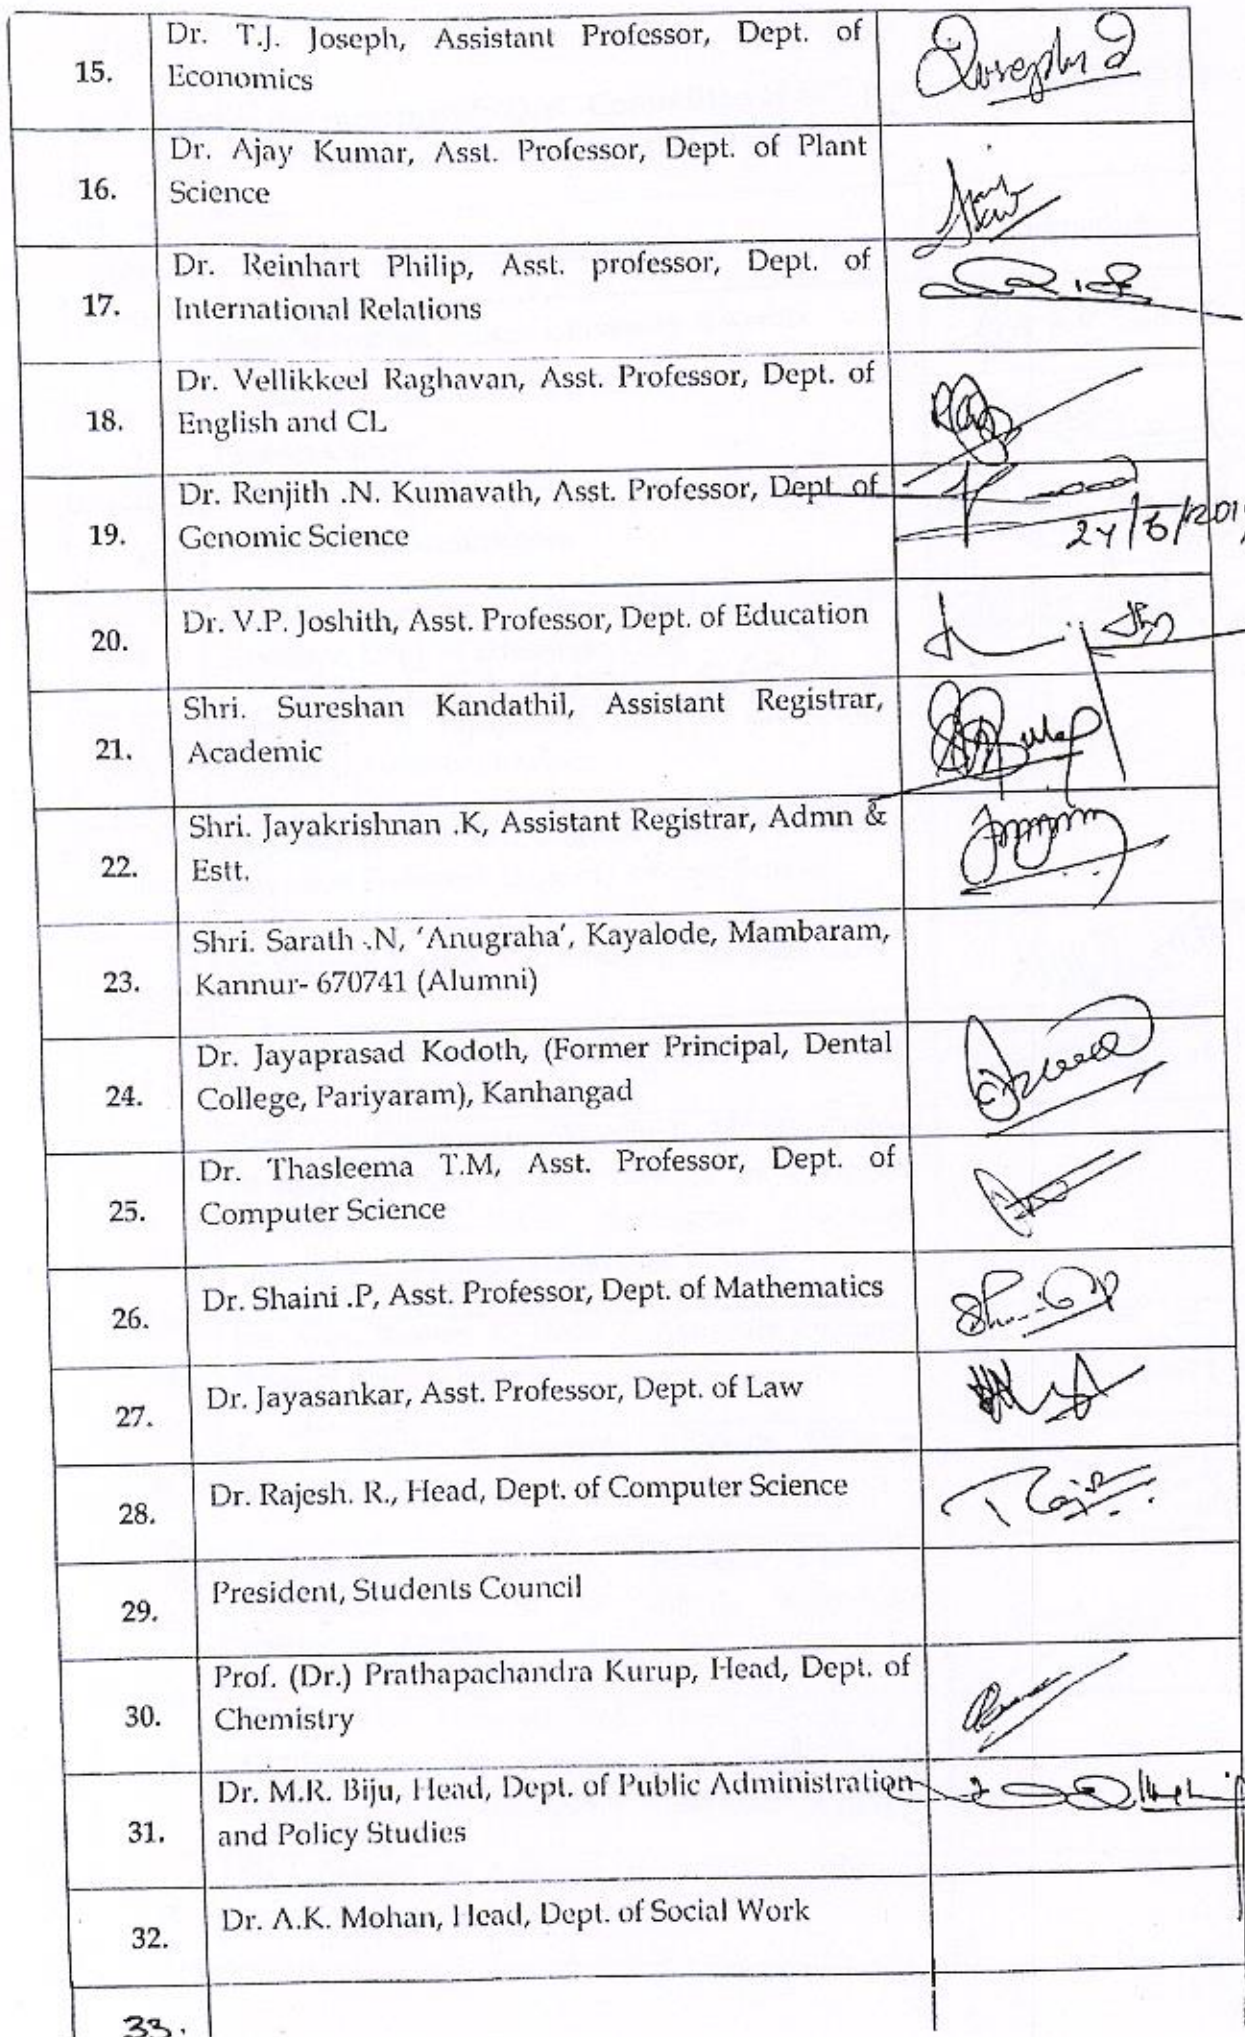 15. Dr. T.J. Joseph, Assistant Professor, Dept. of
Economics
16. Dr. Ajay Kumar, Asst. Professor, Dept. of Plant
Science
17. Dr. Reinhart Philip, Asst. professor, Dept. of
International Relations
18. Dr. Vellikkeel Raghavan, Asst. Professor, Dept. of
English and CL
19. Dr. Renjith .N. Kumavath, Asst. Professor, Dept. of
Genomic Science
20. Dr. V.P. Joshith, Asst. Professor, Dept. of Education
21. Shri. Sureshan Kandathil, Assistant Registrar,
Academic
22. Shri. Jayakrishnan .K, Assistant Registrar, Admn &
Estt.
23. Shri. Sarath .N, ‘Anugraha’, Kayalode, Mambaram,
Kannur- 670741 (Alumni)
24. Dr. Jayaprasad Kodoth, (Former Principal, Dental
College, Pariyaram), Kanhangad
25. Dr. Thasleema T.M, Asst. Professor, Dept. of
Computer Science
26. Dr. Shaini .P, Asst. Professor, Dept. of Mathematics
27. Dr. Jayasankar, Asst. Professor, Dept. of Law
28. Dr. Rajesh. R., Head, Dept. of Computer Science
29. President, Students Council
30. Prof. (Dr.) Prathapachandra Kurup, Head, Dept. of
Chemistry
31. Dr. M.R. Biju, Head, Dept. of Public Administration
and Policy Studies
32. Dr. A.K. Mohan, Head, Dept. of Social Work
33.